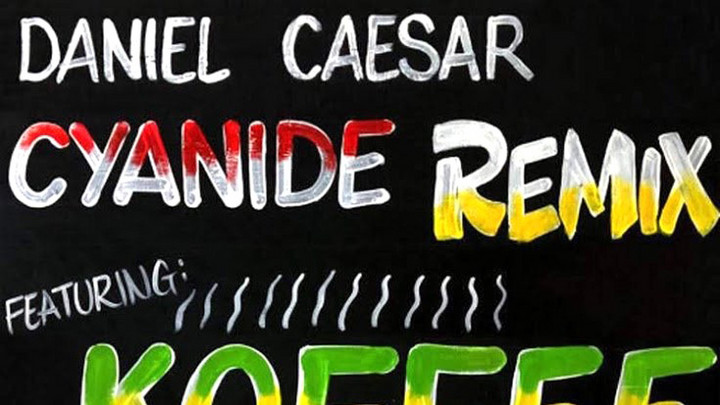 DANIEL CAESAR
CYANIDE REMIX
FEATURING:
KOFFEE